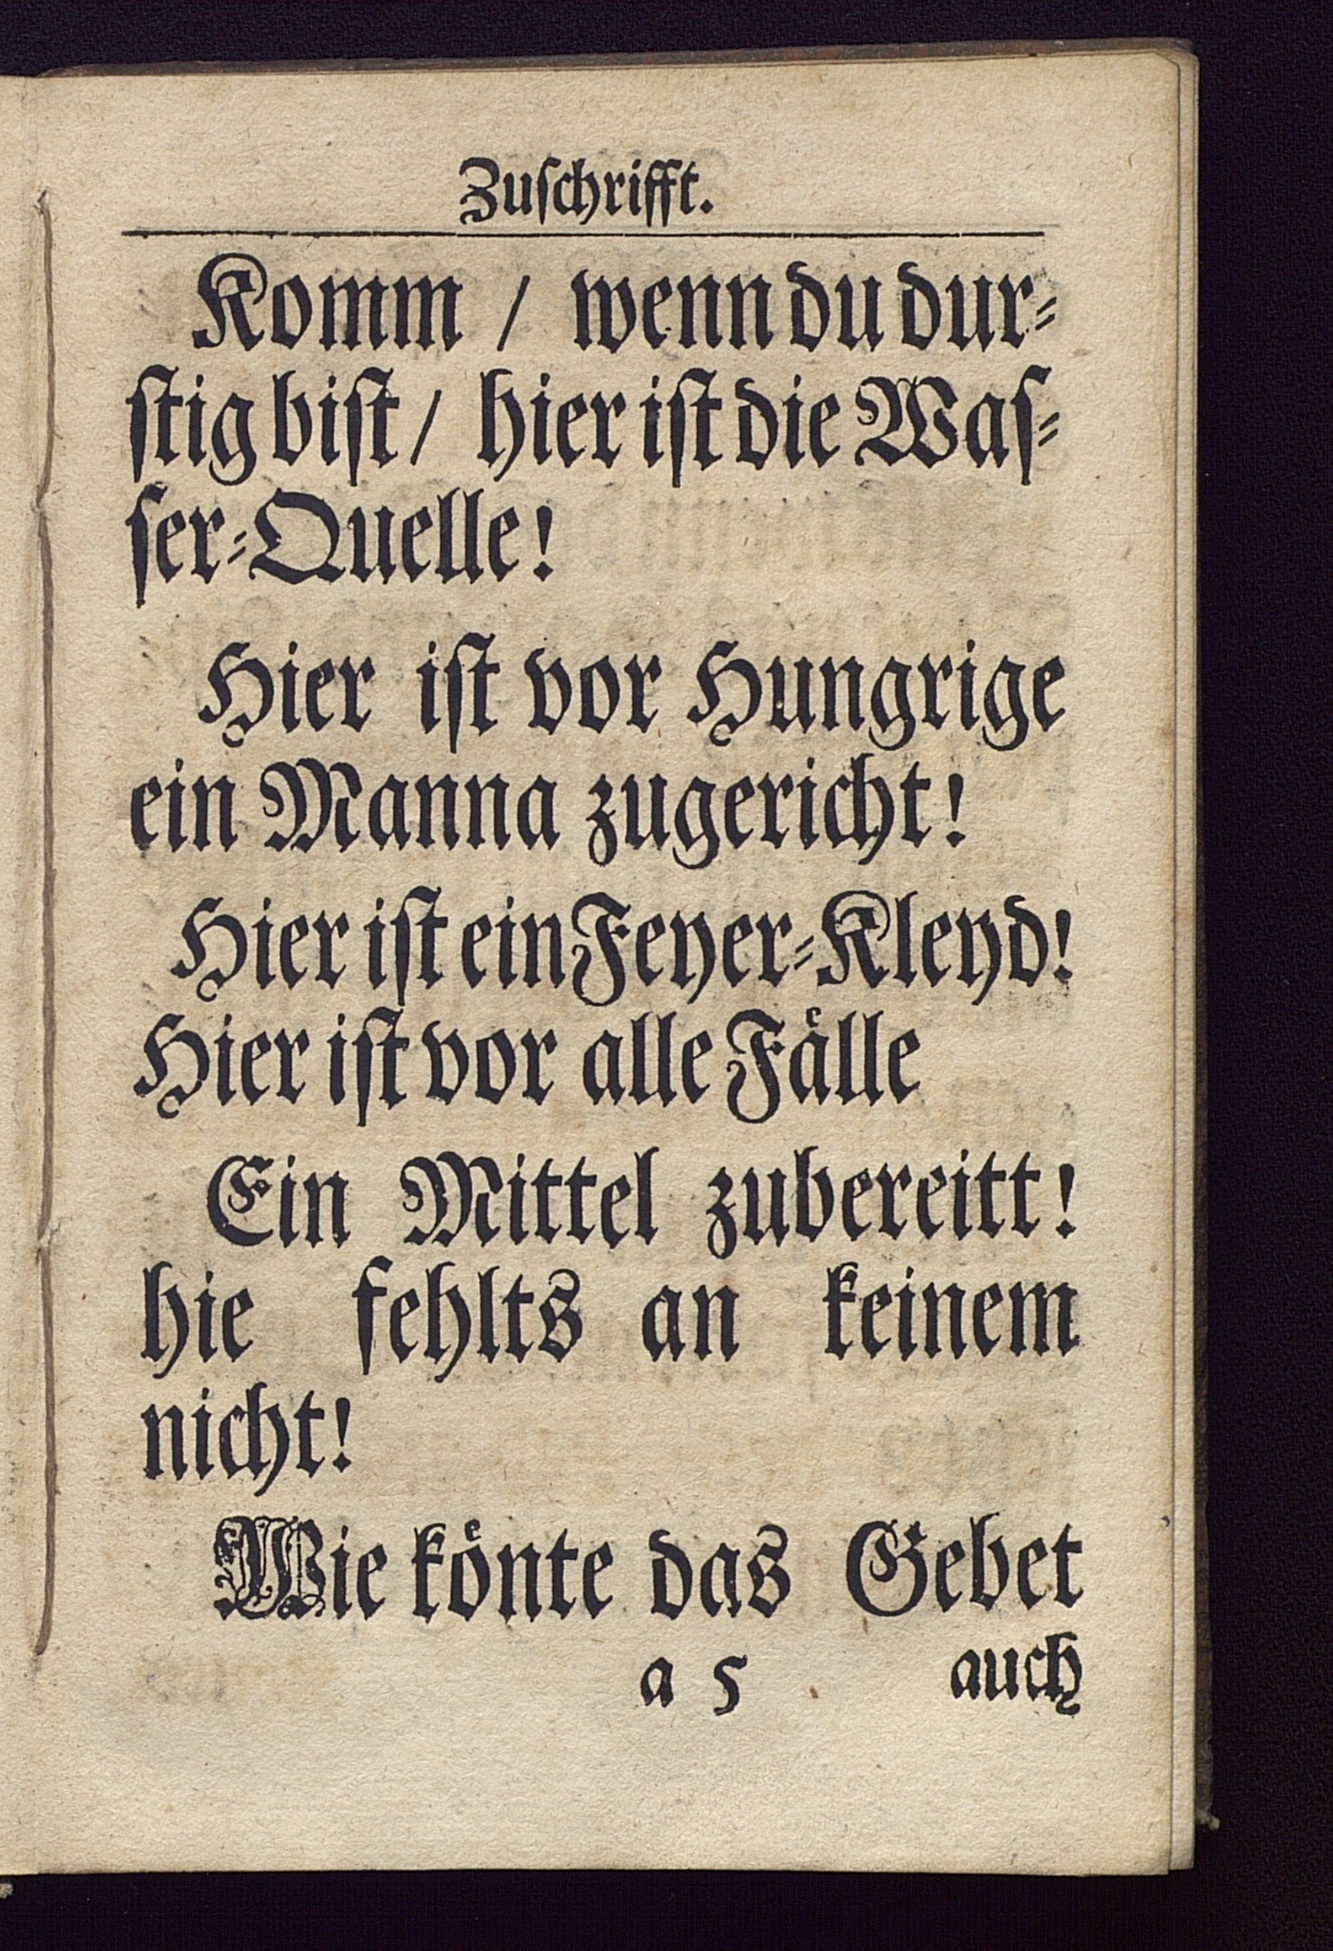 Zuſchrifft.
Komm / wenn du dur⸗
ſtig biſt / hier iſt die Waſ⸗
ſer⸗Quelle!
Hier iſt vor Hungrige
ein Manna zugericht!
Hier iſt ein Feyer⸗Kleyd!
Hier iſt vor alle Faͤlle
Ein Mittel zubereitt!
hie fehlts an keinem
nicht!
Wie koͤnte das Gebet
a 5 auch